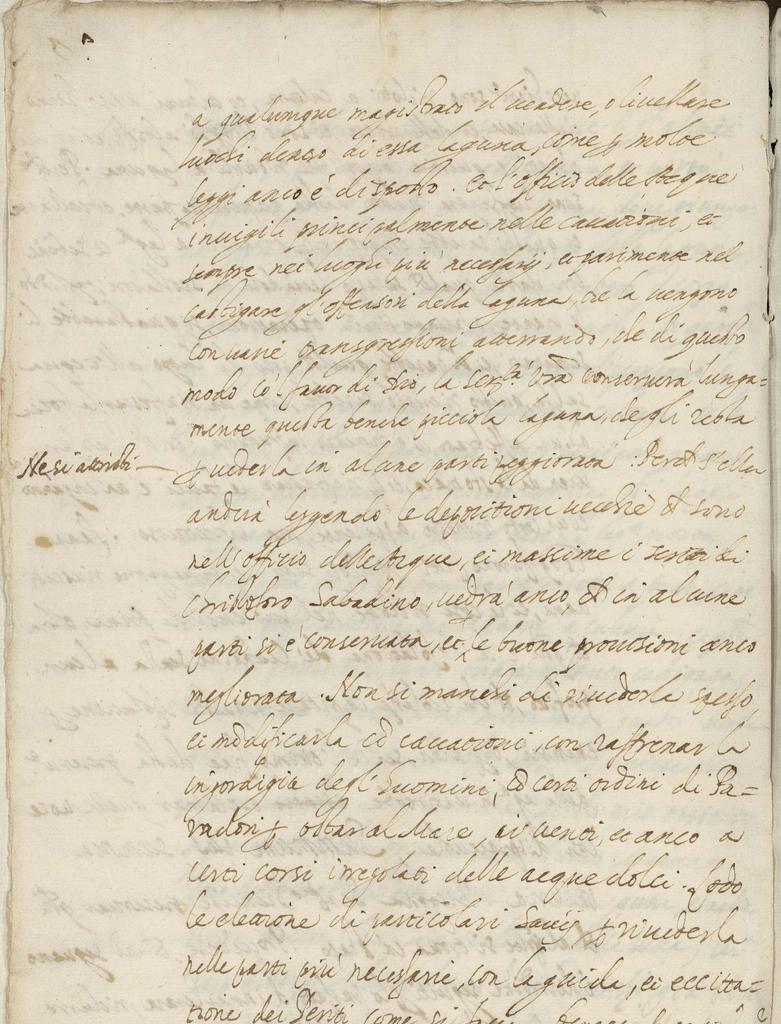 à qualumque magistrato il vendere, o livellare
luoghi dentro di essa laguna, come p molte
leggi anco è disposto. Et l'officio delle Acque
invigili principalmente nelle cavationi, et
sempre nei luoghi più necessarij, et parimente nel
castigare gl'offensori della laguna, che la vengono
con varie transgressioni atterrando, che di questo
modo co'l favor di Dio, la Ser.tà V̄rā conserverà lunga=
mente questa benche picciola laguna, che gli resta
Ne si attristi
p vederla in alcune parti peggiorata. Perche s'ella
andirà leggendo le depositioni vecchie che sono
nell'officio delle Acque, et massime i scritti di
Christoforo Sabadino, vedrà anco, che in alcune
parti si è conservata, et p le buone provisioni anco
megliorata. Non si manchi di rivederla spesso,
et mōdificarla cō cavationi, con raffrenar la
ingordigia degl'huomini, cō certi ordini di Pa=
radori p ostar al Mare, ai venti, et anco a
certi corsi irregolati delle acque dolci. Lodo
le elettione di particolari Savij p rivederla
nelle parti più necessarie, con la guida, et eccitta=
tione dei Periti come si